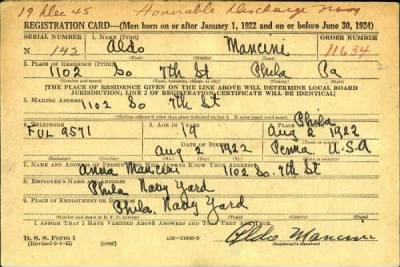 19 Dec 45 Honorable Discharge Navy
REGISTRATION CARD—(Men born on or after January 1, 1922 and on or before June 30, 1924)
SERIAL NUMBER 1. NAME (Print) ORDER NUMBER
N 142 Aldo Mancini 11634
(First) (Middle) (Last)
2. PLACE OF RESIDENCE (Print)
1102 So 7th St Phila Pa
[THE PLACE OF RESIDENCE GIVEN ON THE LINE ABOVE WILL DETERMINE LOCAL BOARD
JURISDICTION; LINE 2 OF REGISTRATION CERTIFICATE WILL BE IDENTICAL]
3. MAILING ADDRESS
1102 So 7th St
4. TELEPHONE 5. AGE IN YEARS 6. PLACE OF BIRTH
FUL 9571 19 Phila
Aug 2 1922
DATE OF BIRTH
Aug 2 1922 Penna U.S.A
7. NAME AND ADDRESS OF PERSON WHO WILL ALWAYS KNOW YOUR ADDRESS
Anna Mancini 1102 So. 7th St
8. EMPLOYER'S NAME AND ADDRESS
Phila Navy Yard
9. PLACE OF EMPLOYMENT OR BUSINESS
Phila. Navy Yard
I AFFIRM THAT I HAVE VERIFIED ABOVE ANSWERS AND THAT THEY ARE TRUE.
D. S. S. Form 1
(Revised 6-1-42) (over) Aldo Mancini
(Registrant's signature)